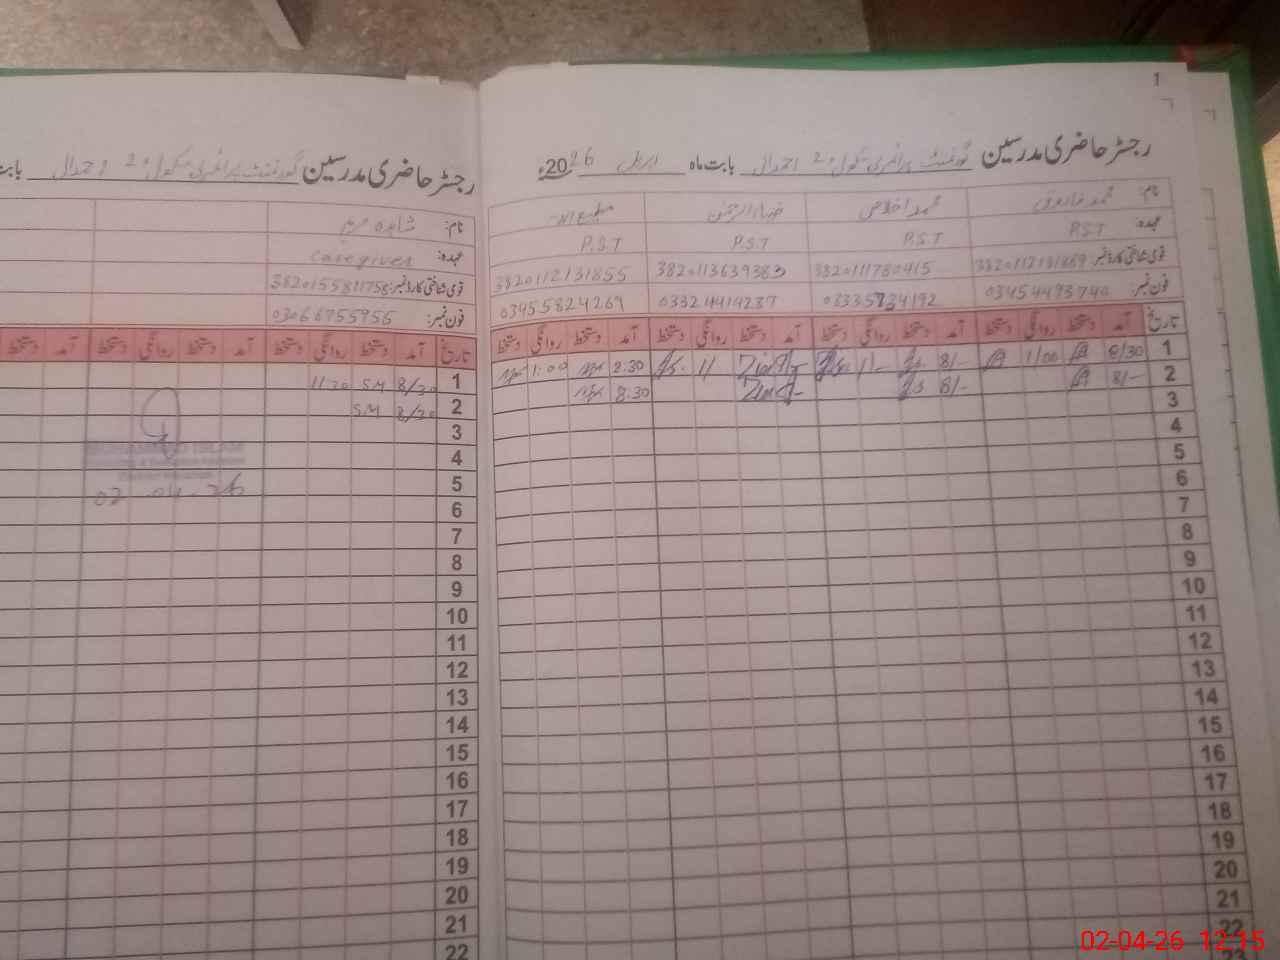 1
رجسٹر حاضری مدرسین گورنمنٹ پرائمری سکول 2 احمدال بابت ماہ اپریل 2026ء
نام: محمد فاروق محمد اخلاص ضیاء الرحمٰن مطیع اللہ
عہدہ: P.S.T P.S.T P.S.T P.S.T
قومی شناختی کارڈ نمبر: 3820111780415 3820113639383 3820112131855
فون نمبر: 03454493740 03335734192 03324414287 03455824269
تاریخ آمد دستخط روانگی دستخط آمد دستخط روانگی دستخط آمد دستخط روانگی دستخط آمد دستخط روانگی دستخط
1 8/30 1/00 8/- 1/- 8:30 1:00
2 8/- 8/- 8:30
3
4
5
6
7
8
9
10
11
12
13
14
15
16
17
18
19
20
21
22
23
رجسٹر حاضری مدرسین گورنمنٹ پرائمری سکول 2 احمدال بابت
نام: شاہدہ مریم
عہدہ: Caregiver
قومی شناختی کارڈ نمبر: 3820155811758
فون نمبر: 03066755956
تاریخ آمد دستخط روانگی دستخط آمد دستخط روانگی دستخط آمد دستخط
1 8/30 SM 11:30
2 8/30 SM
3
4
5
6
7
8
9
10
11
12
13
14
15
16
17
18
19
20
21
22
MUHAMMAD ISLAM
02-04-26
02-04-26 12:15